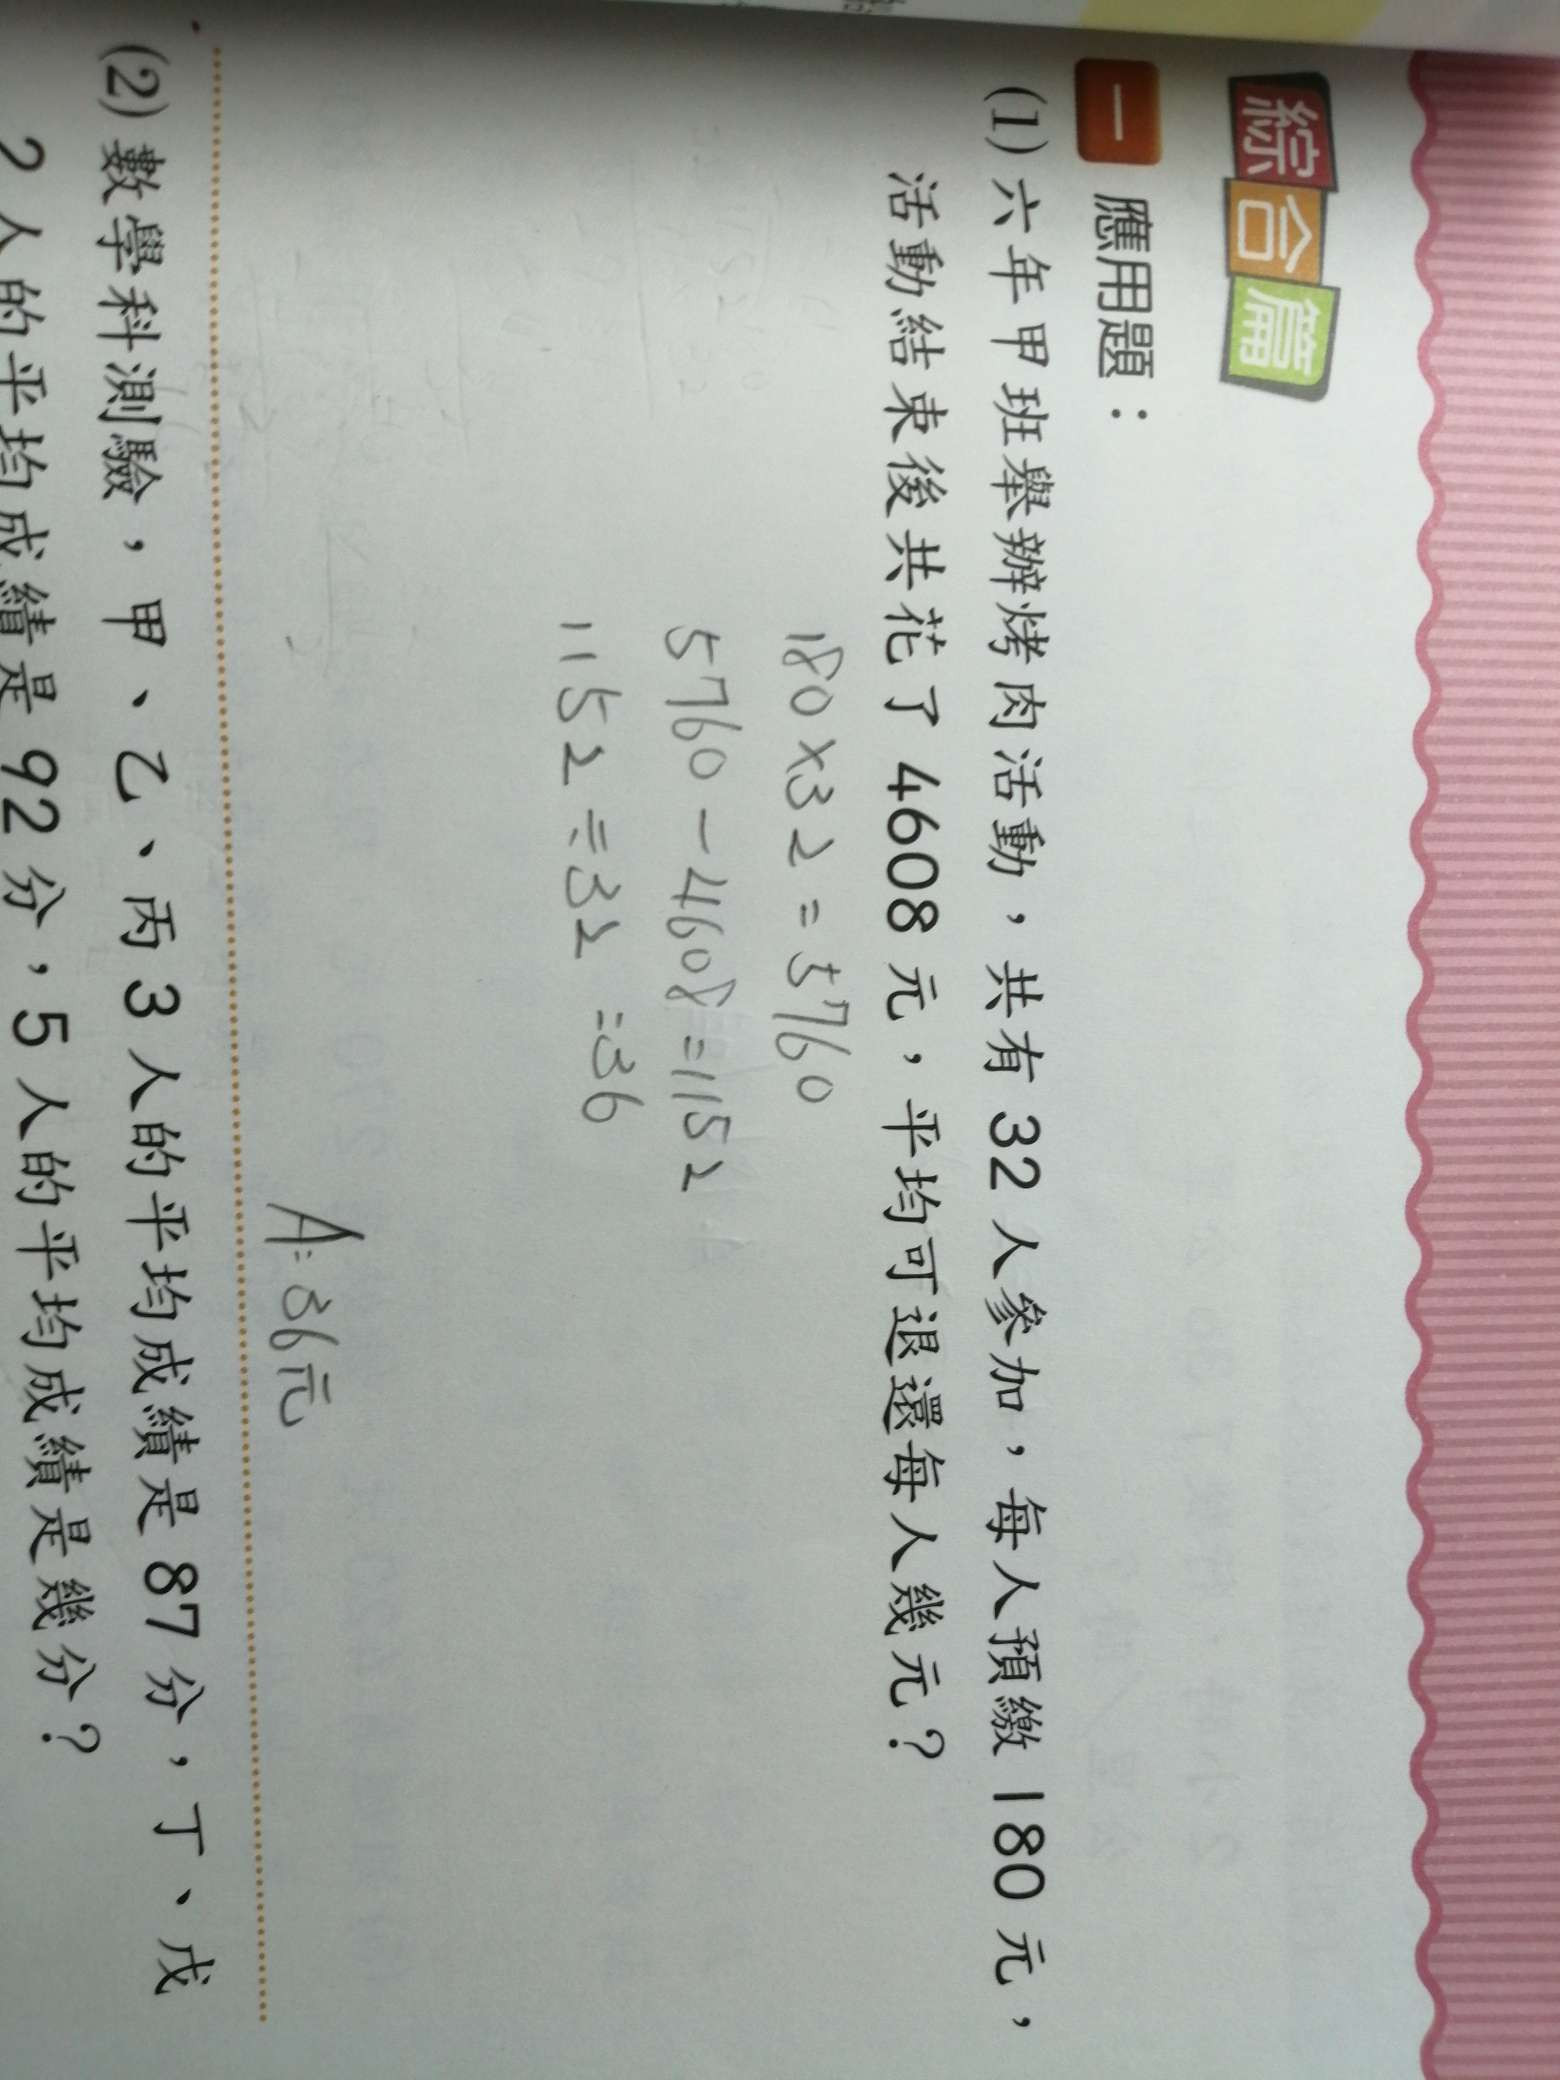 綜合篇
一 應用題：
(1)六年甲班舉辦烤肉活動，共有32人參加，每人預繳180元，
活動結束後共花了4608元，平均可退還每人幾元？
180×32=5760
5760-4608=1152
1152÷32=36
A:36元
(2)數學科測驗，甲、乙、丙3人的平均成績是87分，丁、戊
2人的平均成績是92分，5人的平均成績是幾分？